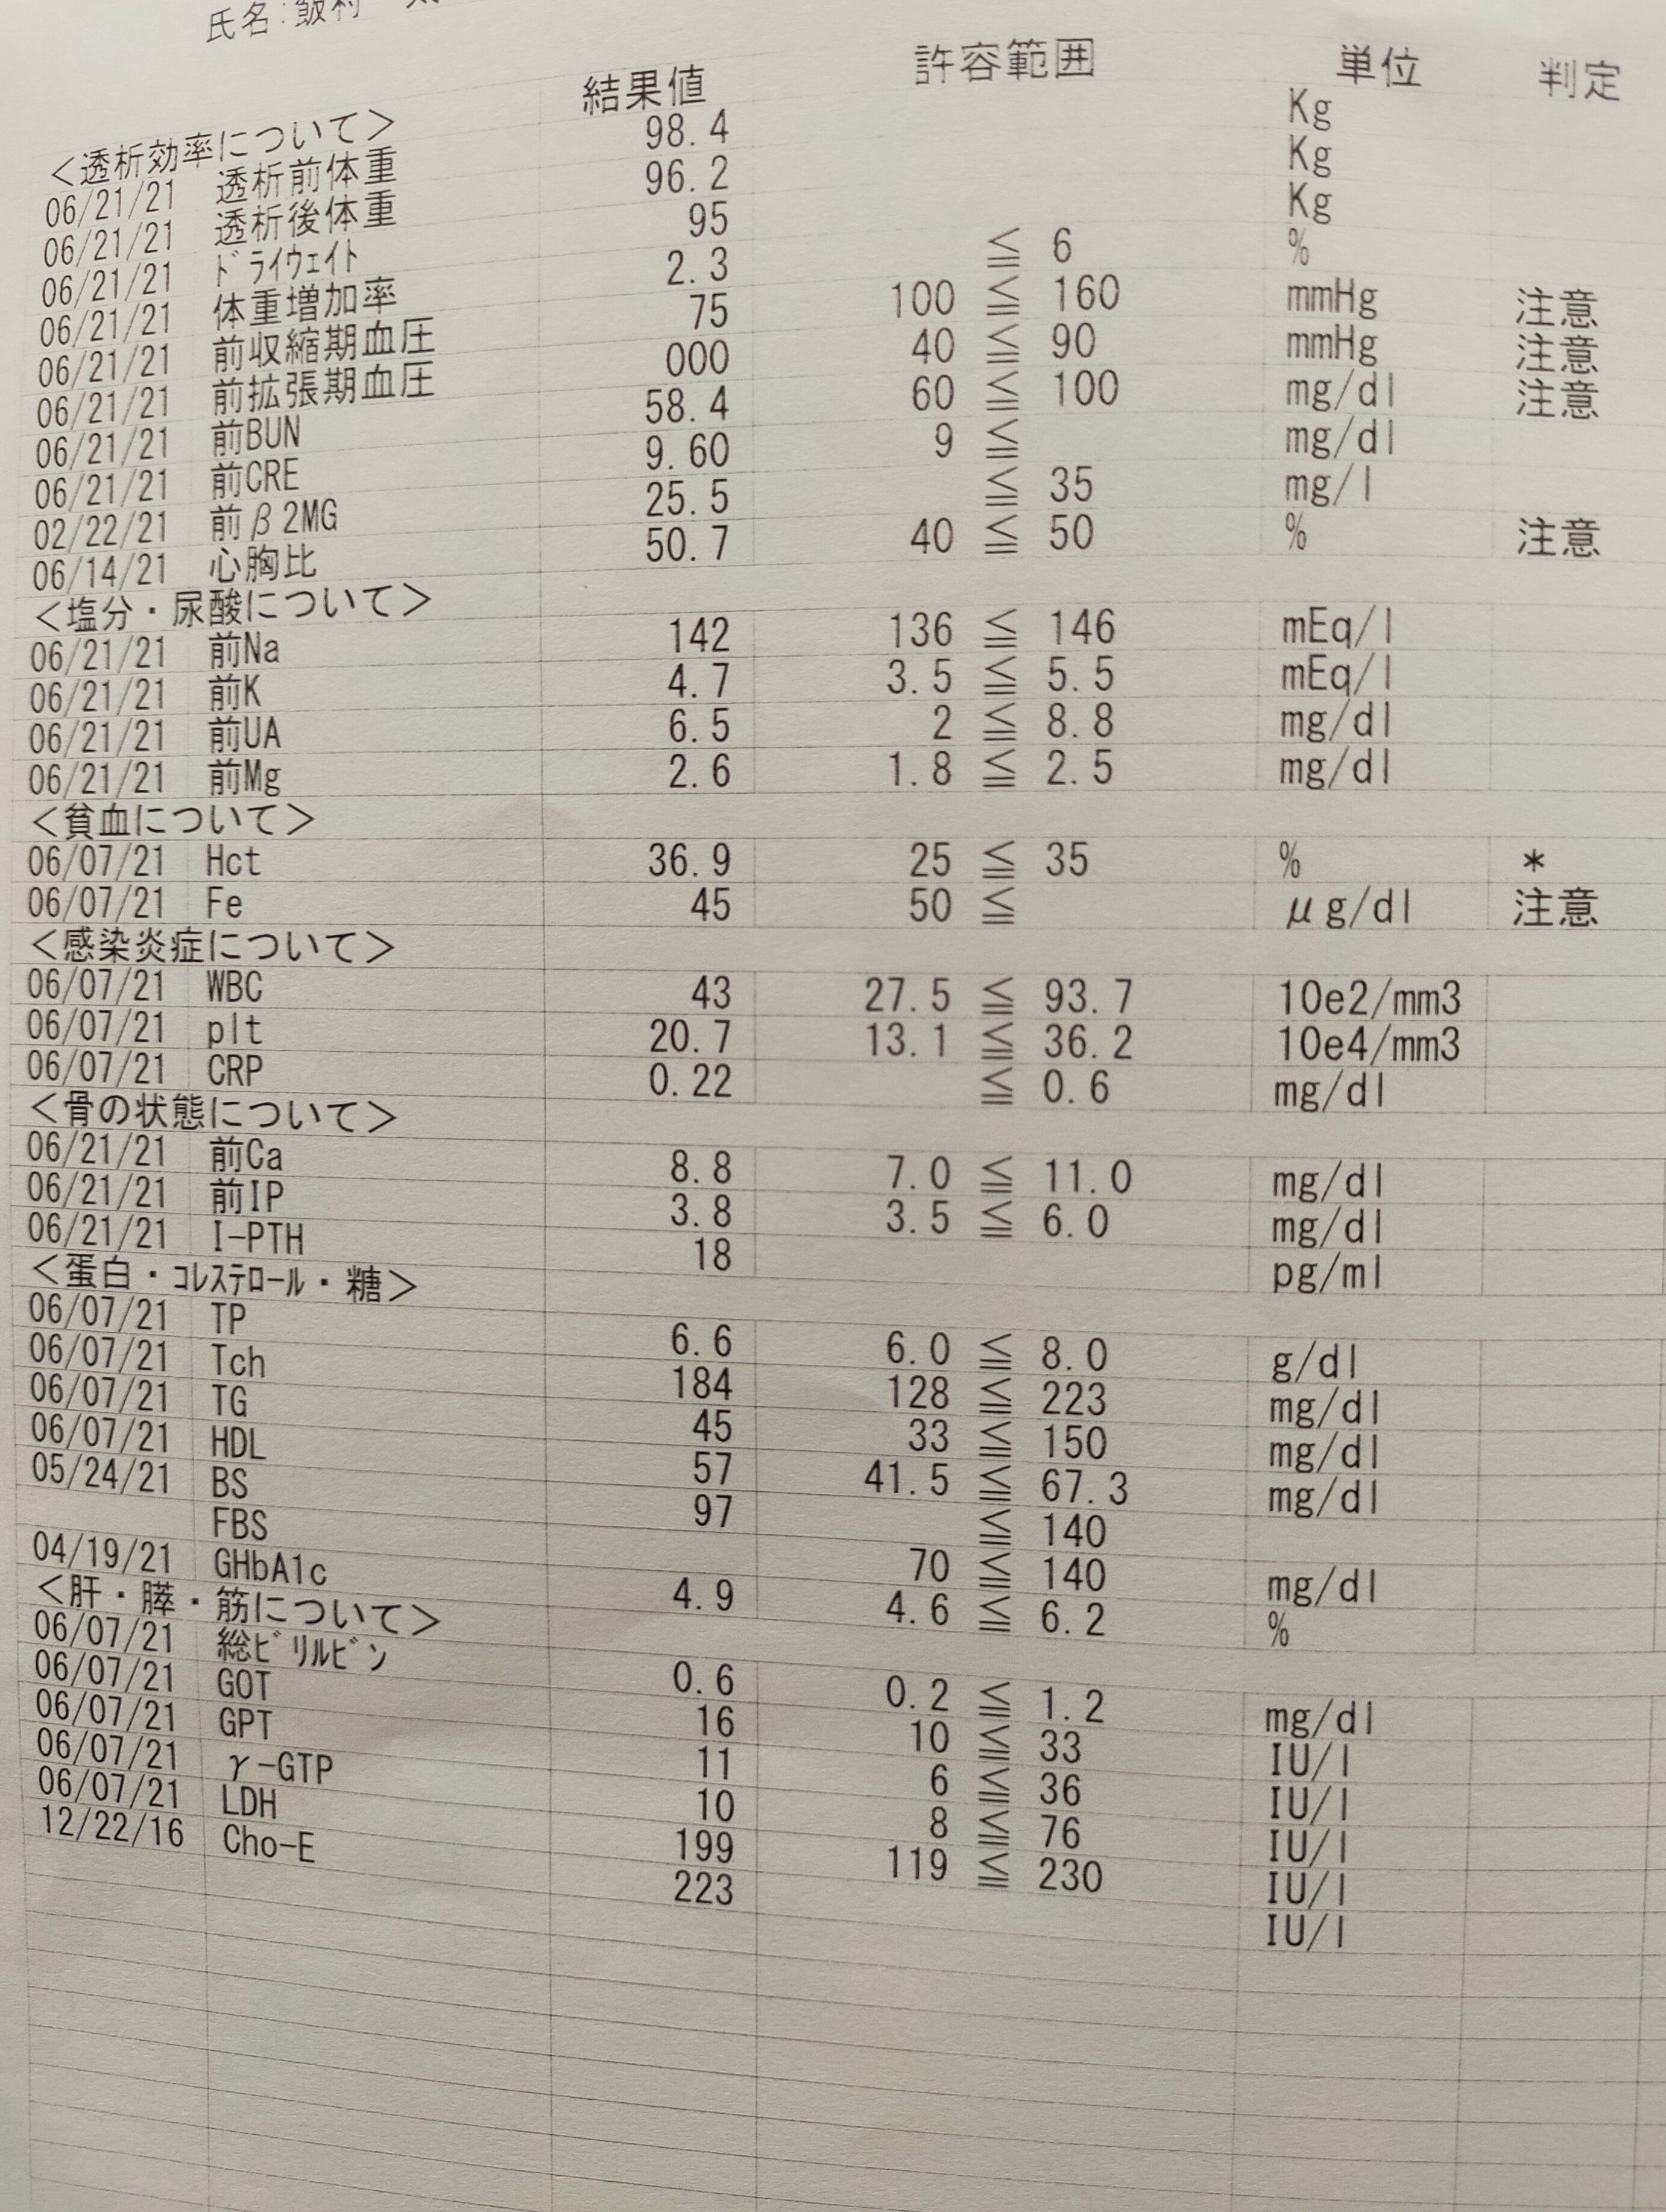 氏名:飯村
結果値 許容範囲 単位 判定
<透析効率について>
06/21/21 透析前体重 98.4 Kg
06/21/21 透析後体重 96.2 Kg
06/21/21 ﾄﾞﾗｲｳｪｲﾄ 95 Kg
06/21/21 体重増加率 2.3 ≦ 6 %
06/21/21 前収縮期血圧 75 100 ≦ 160 mmHg 注意
06/21/21 前拡張期血圧 000 40 ≦ 90 mmHg 注意
06/21/21 前BUN 58.4 60 ≦ 100 mg/dl 注意
06/21/21 前CRE 9.60 9 ≦ mg/dl
02/22/21 前β2MG 25.5 ≦ 35 mg/l
06/14/21 心胸比 50.7 40 ≦ 50 % 注意
<塩分・尿酸について>
06/21/21 前Na 142 136 ≦ 146 mEq/l
06/21/21 前K 4.7 3.5 ≦ 5.5 mEq/l
06/21/21 前UA 6.5 2 ≦ 8.8 mg/dl
06/21/21 前Mg 2.6 1.8 ≦ 2.5 mg/dl
<貧血について>
06/07/21 Hct 36.9 25 ≦ 35 % *
06/07/21 Fe 45 50 ≦ μg/dl 注意
<感染炎症について>
06/07/21 WBC 43 27.5 ≦ 93.7 10e2/mm3
06/07/21 plt 20.7 13.1 ≦ 36.2 10e4/mm3
06/07/21 CRP 0.22 ≦ 0.6 mg/dl
<骨の状態について>
06/21/21 前Ca 8.8 7.0 ≦ 11.0 mg/dl
06/21/21 前IP 3.8 3.5 ≦ 6.0 mg/dl
06/21/21 I-PTH 18 pg/ml
<蛋白・ｺﾚｽﾃﾛｰﾙ・糖>
06/07/21 TP 6.6 6.0 ≦ 8.0 g/dl
06/07/21 Tch 184 128 ≦ 223 mg/dl
06/07/21 TG 45 33 ≦ 150 mg/dl
06/07/21 HDL 57 41.5 ≦ 67.3 mg/dl
05/24/21 BS 97 ≦ 140
FBS 70 ≦ 140 mg/dl
04/19/21 GHbA1c 4.9 4.6 ≦ 6.2 %
<肝・膵・筋について>
06/07/21 総ﾋﾞﾘﾙﾋﾞﾝ 0.6 0.2 ≦ 1.2 mg/dl
06/07/21 GOT 16 10 ≦ 33 IU/l
06/07/21 GPT 11 6 ≦ 36 IU/l
06/07/21 γ-GTP 10 8 ≦ 76 IU/l
06/07/21 LDH 199 119 ≦ 230 IU/l
12/22/16 Cho-E 223 IU/l